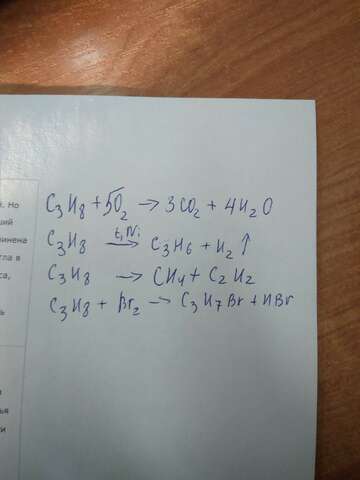 но
ший
инена
гла в
са,
ь
C₃H₈ + 5O₂ → 3CO₂ + 4H₂O
C₃H₈ t, Ni → C₃H₆ + H₂ ↑
C₃H₈ → CH₄ + C₂H₂
C₃H₈ + Br₂ → C₃H₇Br + HBr
а
ья
ти